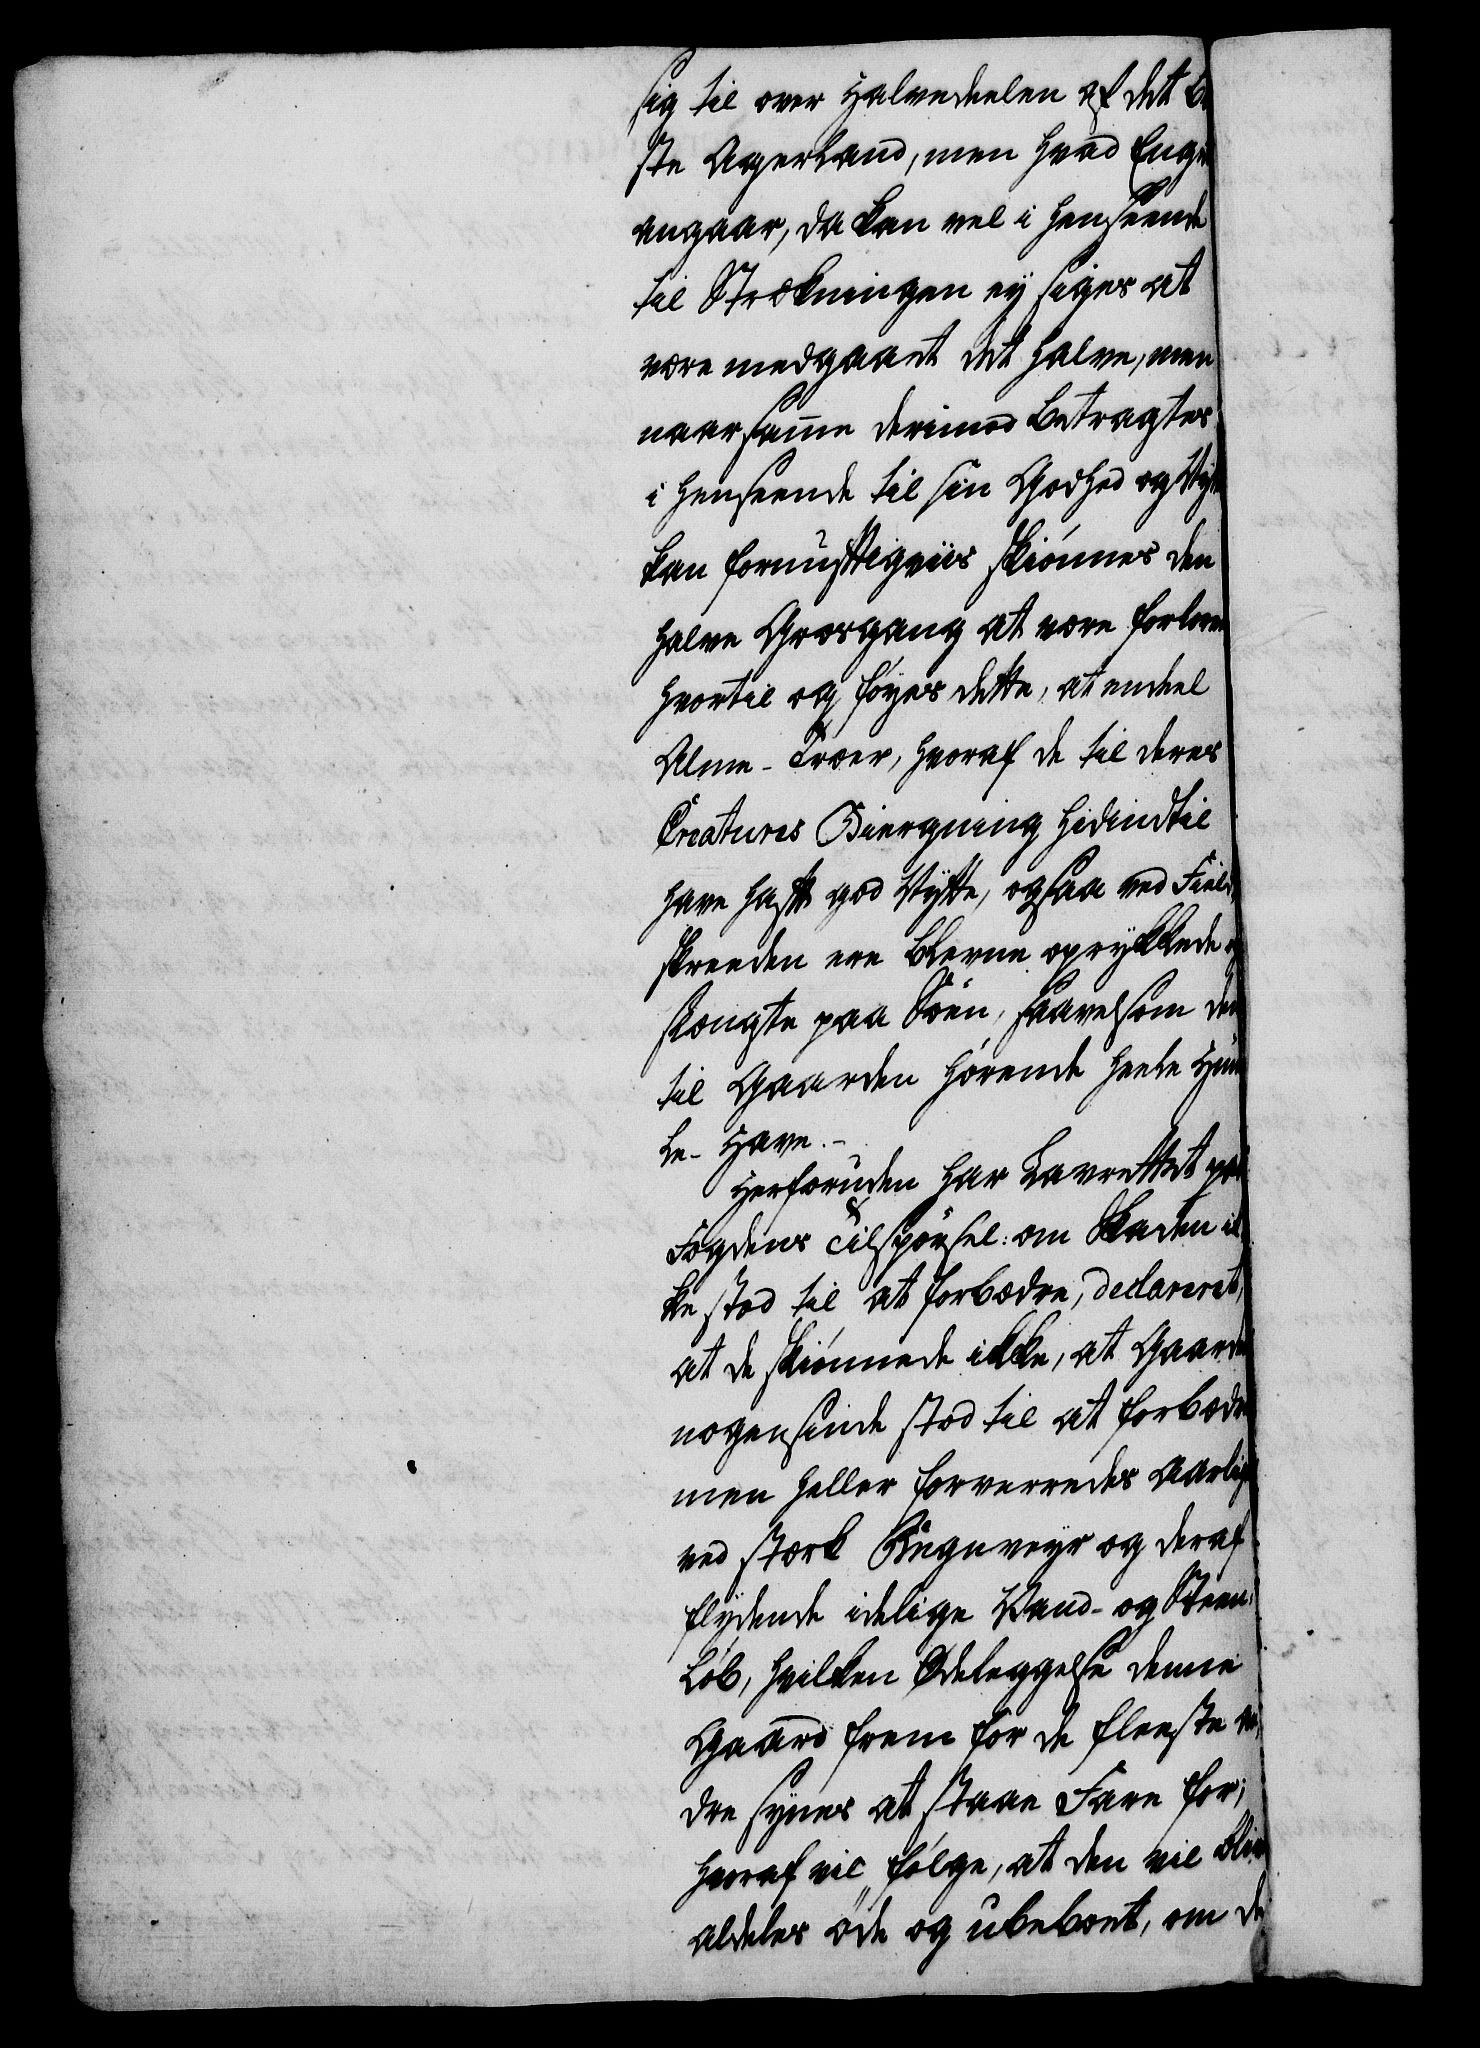 sig til over Halvedeelen af det Be
ste Agerland, men hvad Enge
angaar, da kan vel i henseende
til Strækningen ey siges at
være medgaaet det halve, men
naar sam̄e derimod betragtes
i henseende til sin Godhed og Nytte
kan fornuftigviis skiønnes den
halve Græsgang at være forloren
hvortil og føyes dette, at endeel
Alme-Træer, hvoraf de til deres
Creatures Biergning hidindtil
have haft god Nytte, ogsaa ved Field
skreeden ere blevne oprykkede og
slængte paa Søen, saavelsom den
til Gaarden hørende heele Hum
le-Have.-
Herforuden har Lavrettet paa
Fogdens Tilspørsel: om Skaden ik
ke stod til at forbædre, declareret,
at de skiønnede ikke, at Gaarden
nogensinde stod til at forbædre
men heller forverredes aarlig
ved stærk Regnveyr og deraf
flydende idelige Vand- og Steen-
Løb, hvilken Ødeleggelse denne
Gaard frem for de fleeste an
dre synes at staae Fare for;
hvoraf vil følge, at den vil blive
aldeles øde og ubeboet, om de